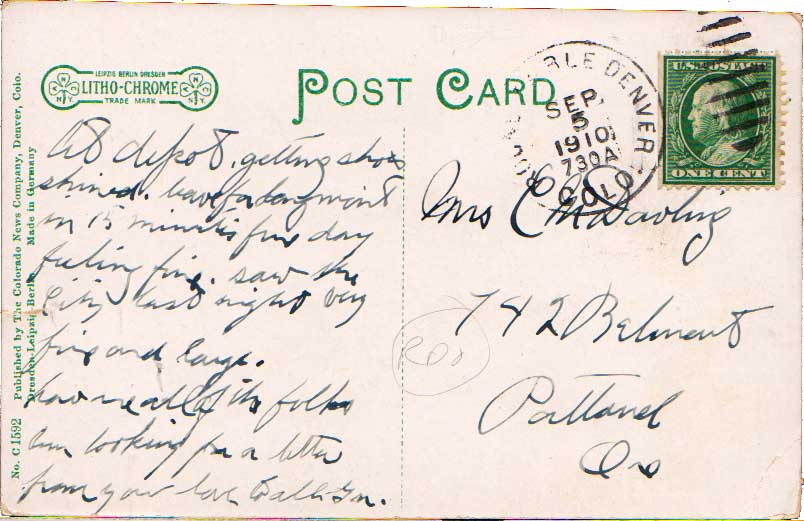 LEIPZIG BERLIN DRESDEN
LITHO-CHROME
TRADE MARK
N N
Y. Y.
POST CARD
DENVER
SEP.
5
1910
730A
COLO.
U.S. POSTAGE
ONE CENT
At depot, getting shoes
shined. leave for
in 15 minutes fine day
feeling fine. saw the
City last night very
fine and large.
How are all of the folks
Am looking for a letter
from your love
Mrs C M Darling
742 Belmont
Portland
Or
No. C 1592 Published by The Colorado News Company, Denver, Colo.
Dresden-Leipzig-Berlin Made in Germany